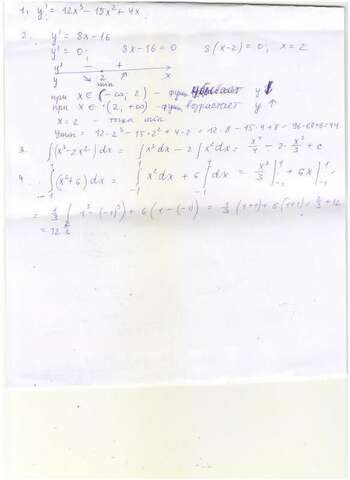 1. y' = 12x³ - 15x² + 4x
2. y' = 8x - 16
y' = 0 8x - 16 = 0 8(x-2) = 0; x = 2
y' - +
y 2 x
min
при x ∈ (-∞; 2) - функ убывает y ↓
при x ∈ (2; +∞) - функ возрастает y ↑
x = 2 - точка min
y min = 12·2³ - 15·2² + 4·2 = 12·8 - 15·4 + 8 = 96-60+8=44
3. ∫(x³-2x²)dx = ∫x³dx - 2∫x²dx = x⁴/4 - 2·x³/3 + c
4. ∫₋₁¹(x²+6)dx = ∫₋₁¹x²dx + 6∫₋₁¹dx = x³/3|₋₁¹ + 6x|₋₁¹ =
= 1/3(1³-(-1)³) + 6(1-(-1)) = 1/3(1+1)+6(1+1) = 2/3+12
= 12